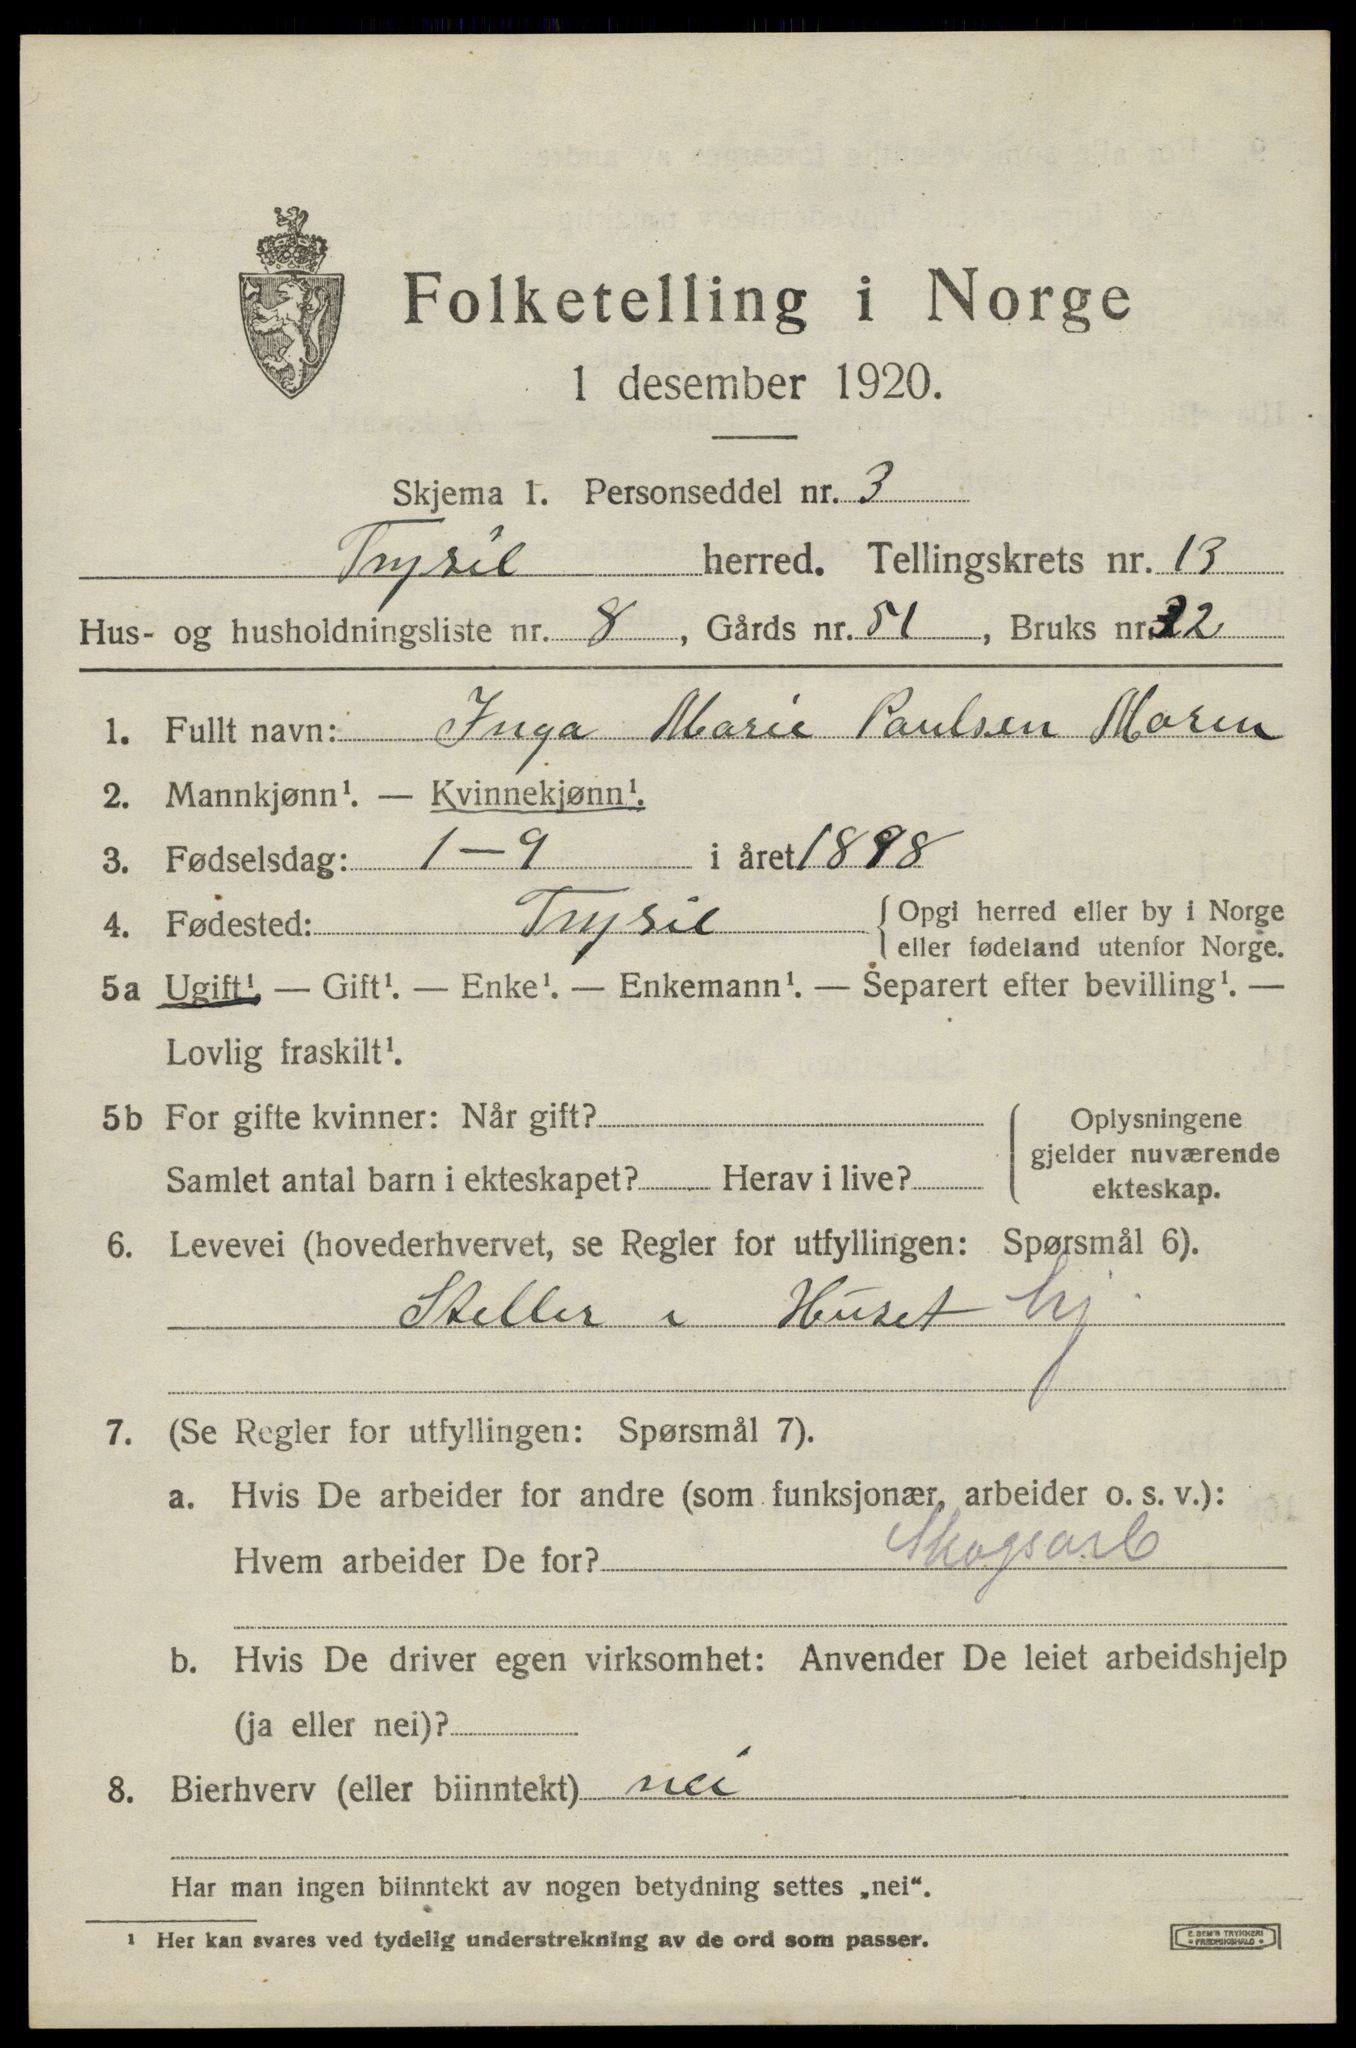 Folketelling i Norge
1 desember 1920.
Skjema 1. Personseddel nr. 3
Trysil herred. Tellingskrets nr. 13
Hus- og husholdningsliste nr. 8, Gårds nr. 51, Bruks nr. 32
1. Fullt navn: Inga Marie Paulsen Moren
2. Mannkjønn¹. — Kvinnekjønn¹.
3. Fødselsdag: 1-9 i året 1898
4. Fødested: Trysil { Opgi herred eller by i Norge
eller fødeland utenfor Norge.
5a Ugift¹. — Gift¹. — Enke¹. — Enkemann¹. — Separert efter bevilling¹. —
Lovlig fraskilt¹.
5b For gifte kvinner: Når gift? Oplysningene
gjelder nuværende
Samlet antal barn i ekteskapet? Herav i live? ekteskap.
6. Levevei (hovederhvervet, se Regler for utfyllingen: Spørsmål 6).
Steller i Huset hj.
7. (Se Regler for utfyllingen: Spørsmål 7).
a. Hvis De arbeider for andre (som funksjonær, arbeider o. s. v.):
Hvem arbeider De for? Skogsarb
b. Hvis De driver egen virksomhet: Anvender De leiet arbeidshjelp
(ja eller nei)?
8. Bierhverv (eller biinntekt) nei
Har man ingen biinntekt av nogen betydning settes „nei“.
¹ Her kan svares ved tydelig understrekning av de ord som passer.
E. SEM'S TRYKKERI
FREDRIKSHALD